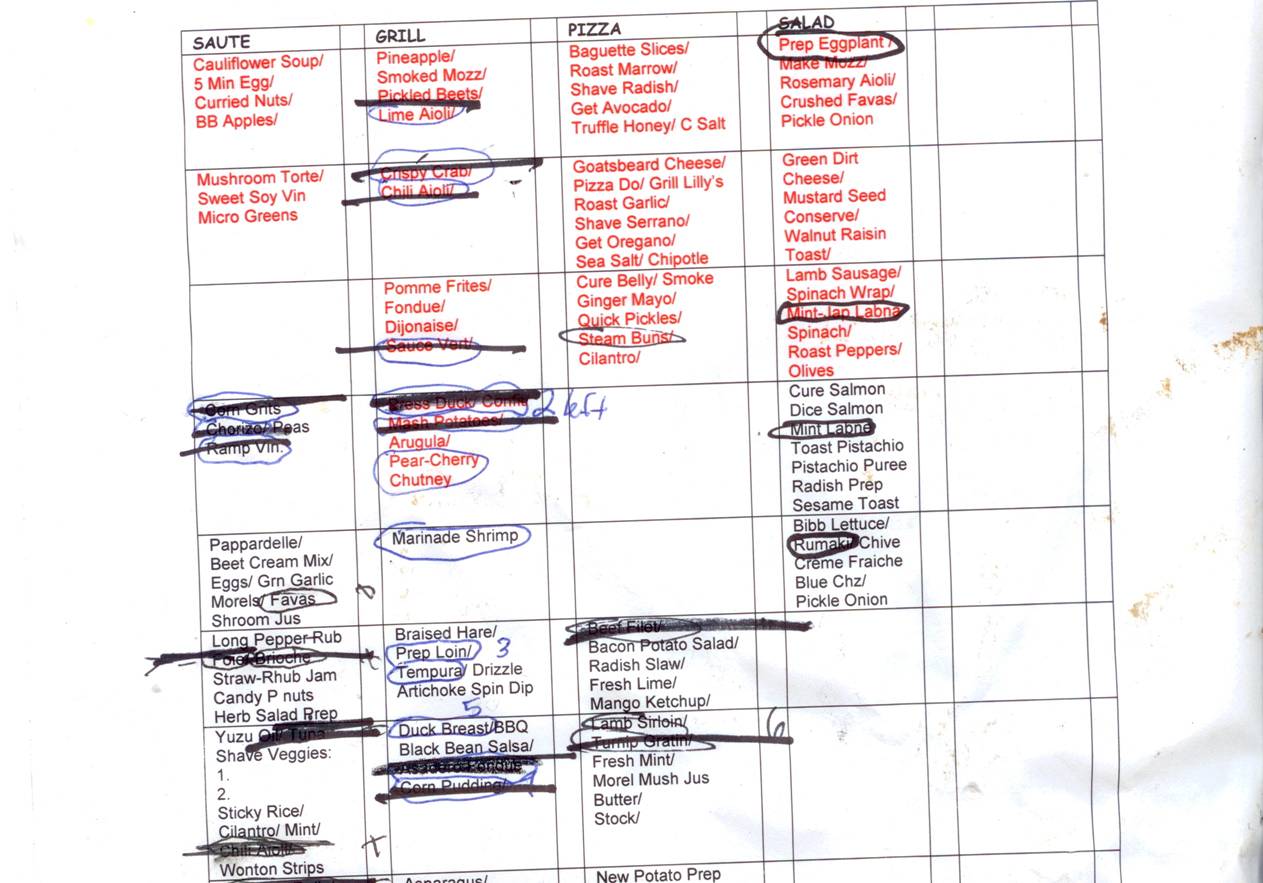 SAUTE
Cauliflower Soup/
5 Min Egg/
Curried Nuts/
BB Apples/
GRILL
Pineapple/
Smoked Mozz/
Pickled Beets/
Lime Aioli/
PIZZA
Baguette Slices/
Roast Marrow/
Shave Radish/
Get Avocado/
Truffle Honey/ C Salt
SALAD
Prep Eggplant /
Make Mozz/
Rosemary Aioli/
Crushed Favas/
Pickle Onion
Mushroom Torte/
Sweet Soy Vin
Micro Greens
Crispy Crab/
Chili Aioli/
Goatsbeard Cheese/
Pizza Do/ Grill Lilly's
Roast Garlic/
Shave Serrano/
Get Oregano/
Sea Salt/ Chipotle
Green Dirt
Cheese/
Mustard Seed
Conserve/
Walnut Raisin
Toast/
Pomme Frites/
Fondue/
Dijonaise/
Sauce Vert/
Cure Belly/ Smoke
Ginger Mayo/
Quick Pickles/
Steam Buns/
Cilantro/
Lamb Sausage/
Spinach Wrap/
Mint-Jap Labna
Spinach/
Roast Peppers/
Olives
Corn Grits
Chorizo/ Peas
Ramp Vin.
Press Duck/ Confit 2 left
Mash Potatoes/
Arugula/
Pear-Cherry
Chutney
Cure Salmon
Dice Salmon
Mint Labne
Toast Pistachio
Pistachio Puree
Radish Prep
Sesame Toast
Pappardelle/
Beet Cream Mix/
Eggs/ Grn Garlic
Morels/ Favas
Shroom Jus
Marinade Shrimp
Bibb Lettuce/
Rumaki/ Chive
Crème Fraiche
Blue Chz/
Pickle Onion
Long Pepper Rub
Foie/ Brioche
Straw-Rhub Jam
Candy P nuts
Herb Salad Prep
Braised Hare/
Prep Loin/ 3
Tempura/ Drizzle
Artichoke Spin Dip
Beef Filet/
Bacon Potato Salad/
Radish Slaw/
Fresh Lime/
Mango Ketchup/
Yuzu Oil/ Tuna
Shave Veggies:
1.
2.
Sticky Rice/
Cilantro/ Mint/
Chili Aioli/
Wonton Strips
5
Duck Breast/BBQ
Black Bean Salsa/
Corn Pudding/
Lamb Sirloin/ 6
Turnip Gratin/
Fresh Mint/
Morel Mush Jus
Butter/
Stock/
Asparagus/
New Potato Prep